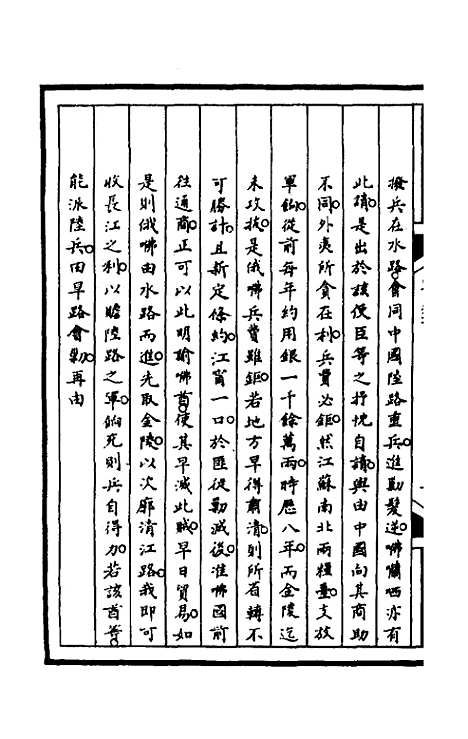 撥兵在水路。會同中國陸路重兵。進勦髮逆。哷嚹哂亦有
此請。是出於該使臣等之抒忱自請。與由中國向其商助
不同。外夷所貪在利。兵費必鉅。然江蘇南北兩糧臺。支放
軍餉。從前每年約用銀一千餘萬兩。時歷八年。而金陵迄
未攻拔。是俄咈兵費雖鉅。若地方早得肅清。則所省轉不
可勝計。且新定條約。江甯一口。於匪徒勦滅後。准咈國前
往通商。正可以此明諭咈酋。使其早滅此賊。早日貿易。如
是則俄咈由水路而進。先取金陵。以次廓清江路。我即可
收長江之利。以贍陸路之軍。餉充則兵自得力。若該酋等。
能派陸兵。由旱路會勦。再由